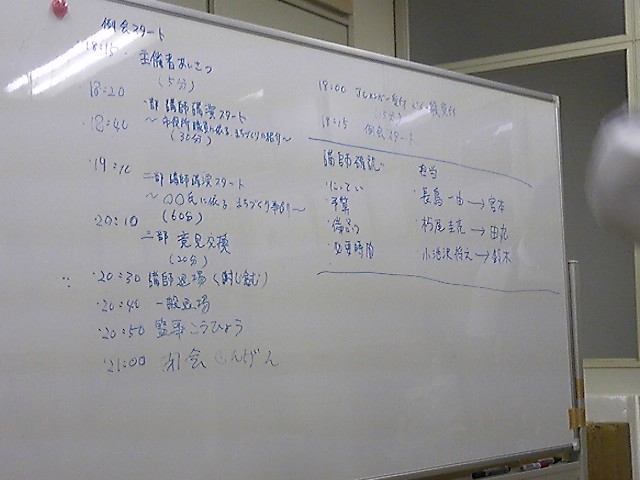 例会スタート
18:15 主催者あいさつ
(5分)
18:20
一部 講師講演スタート
18:40 〜市役所職員に依る まちづくり紹介〜
(30分)
19:10
二部 講師講演スタート
〜〇〇氏に依る まちづくり事例〜
(60分)
20:10
三部 意見交換
(20分)
20:30 講師退場(謝辞含む)
20:40 一般退場
20:50 監事こうひょう
21:00 閉会せんげん
18:00
18:15 例会スタート
講師確認
・について
・予算
・備品
・必要時間
担当
・長島 一由→宮本
・栃尾圭亮→田丸
小池沢将文→鈴木